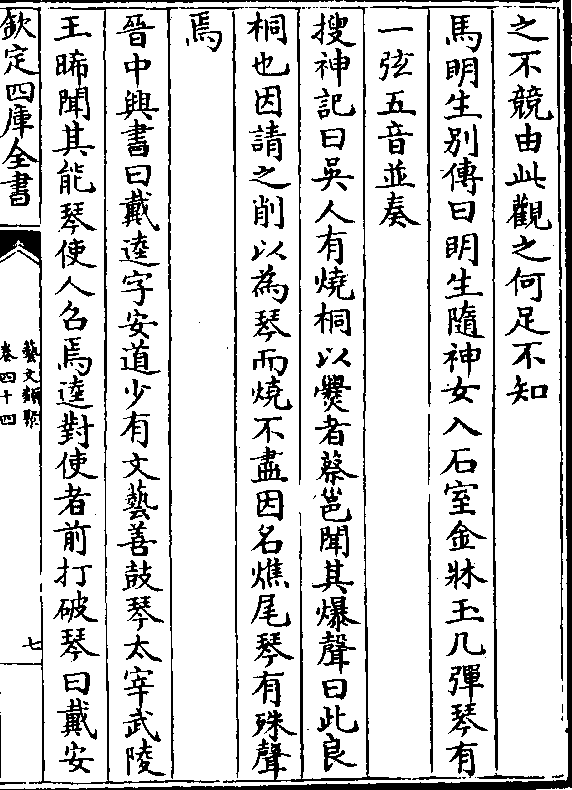 之不競由此觀之何足不知
馬明生別傳曰明生隨神女入石室金牀玉几彈琴有
一弦五音並奏
搜神記曰吳人有燒桐以爨者蔡邕聞其爆聲曰此良
桐也因請之削以為琴而燒不盡因名燋尾琴有殊聲
焉
晉中興書曰戴逵字安道少有文藝善鼓琴太宰武陵
王晞聞其能琴使人召焉逵對使者前打破琴曰戴安
欽定四庫全書
藝文類聚
卷四十四
七